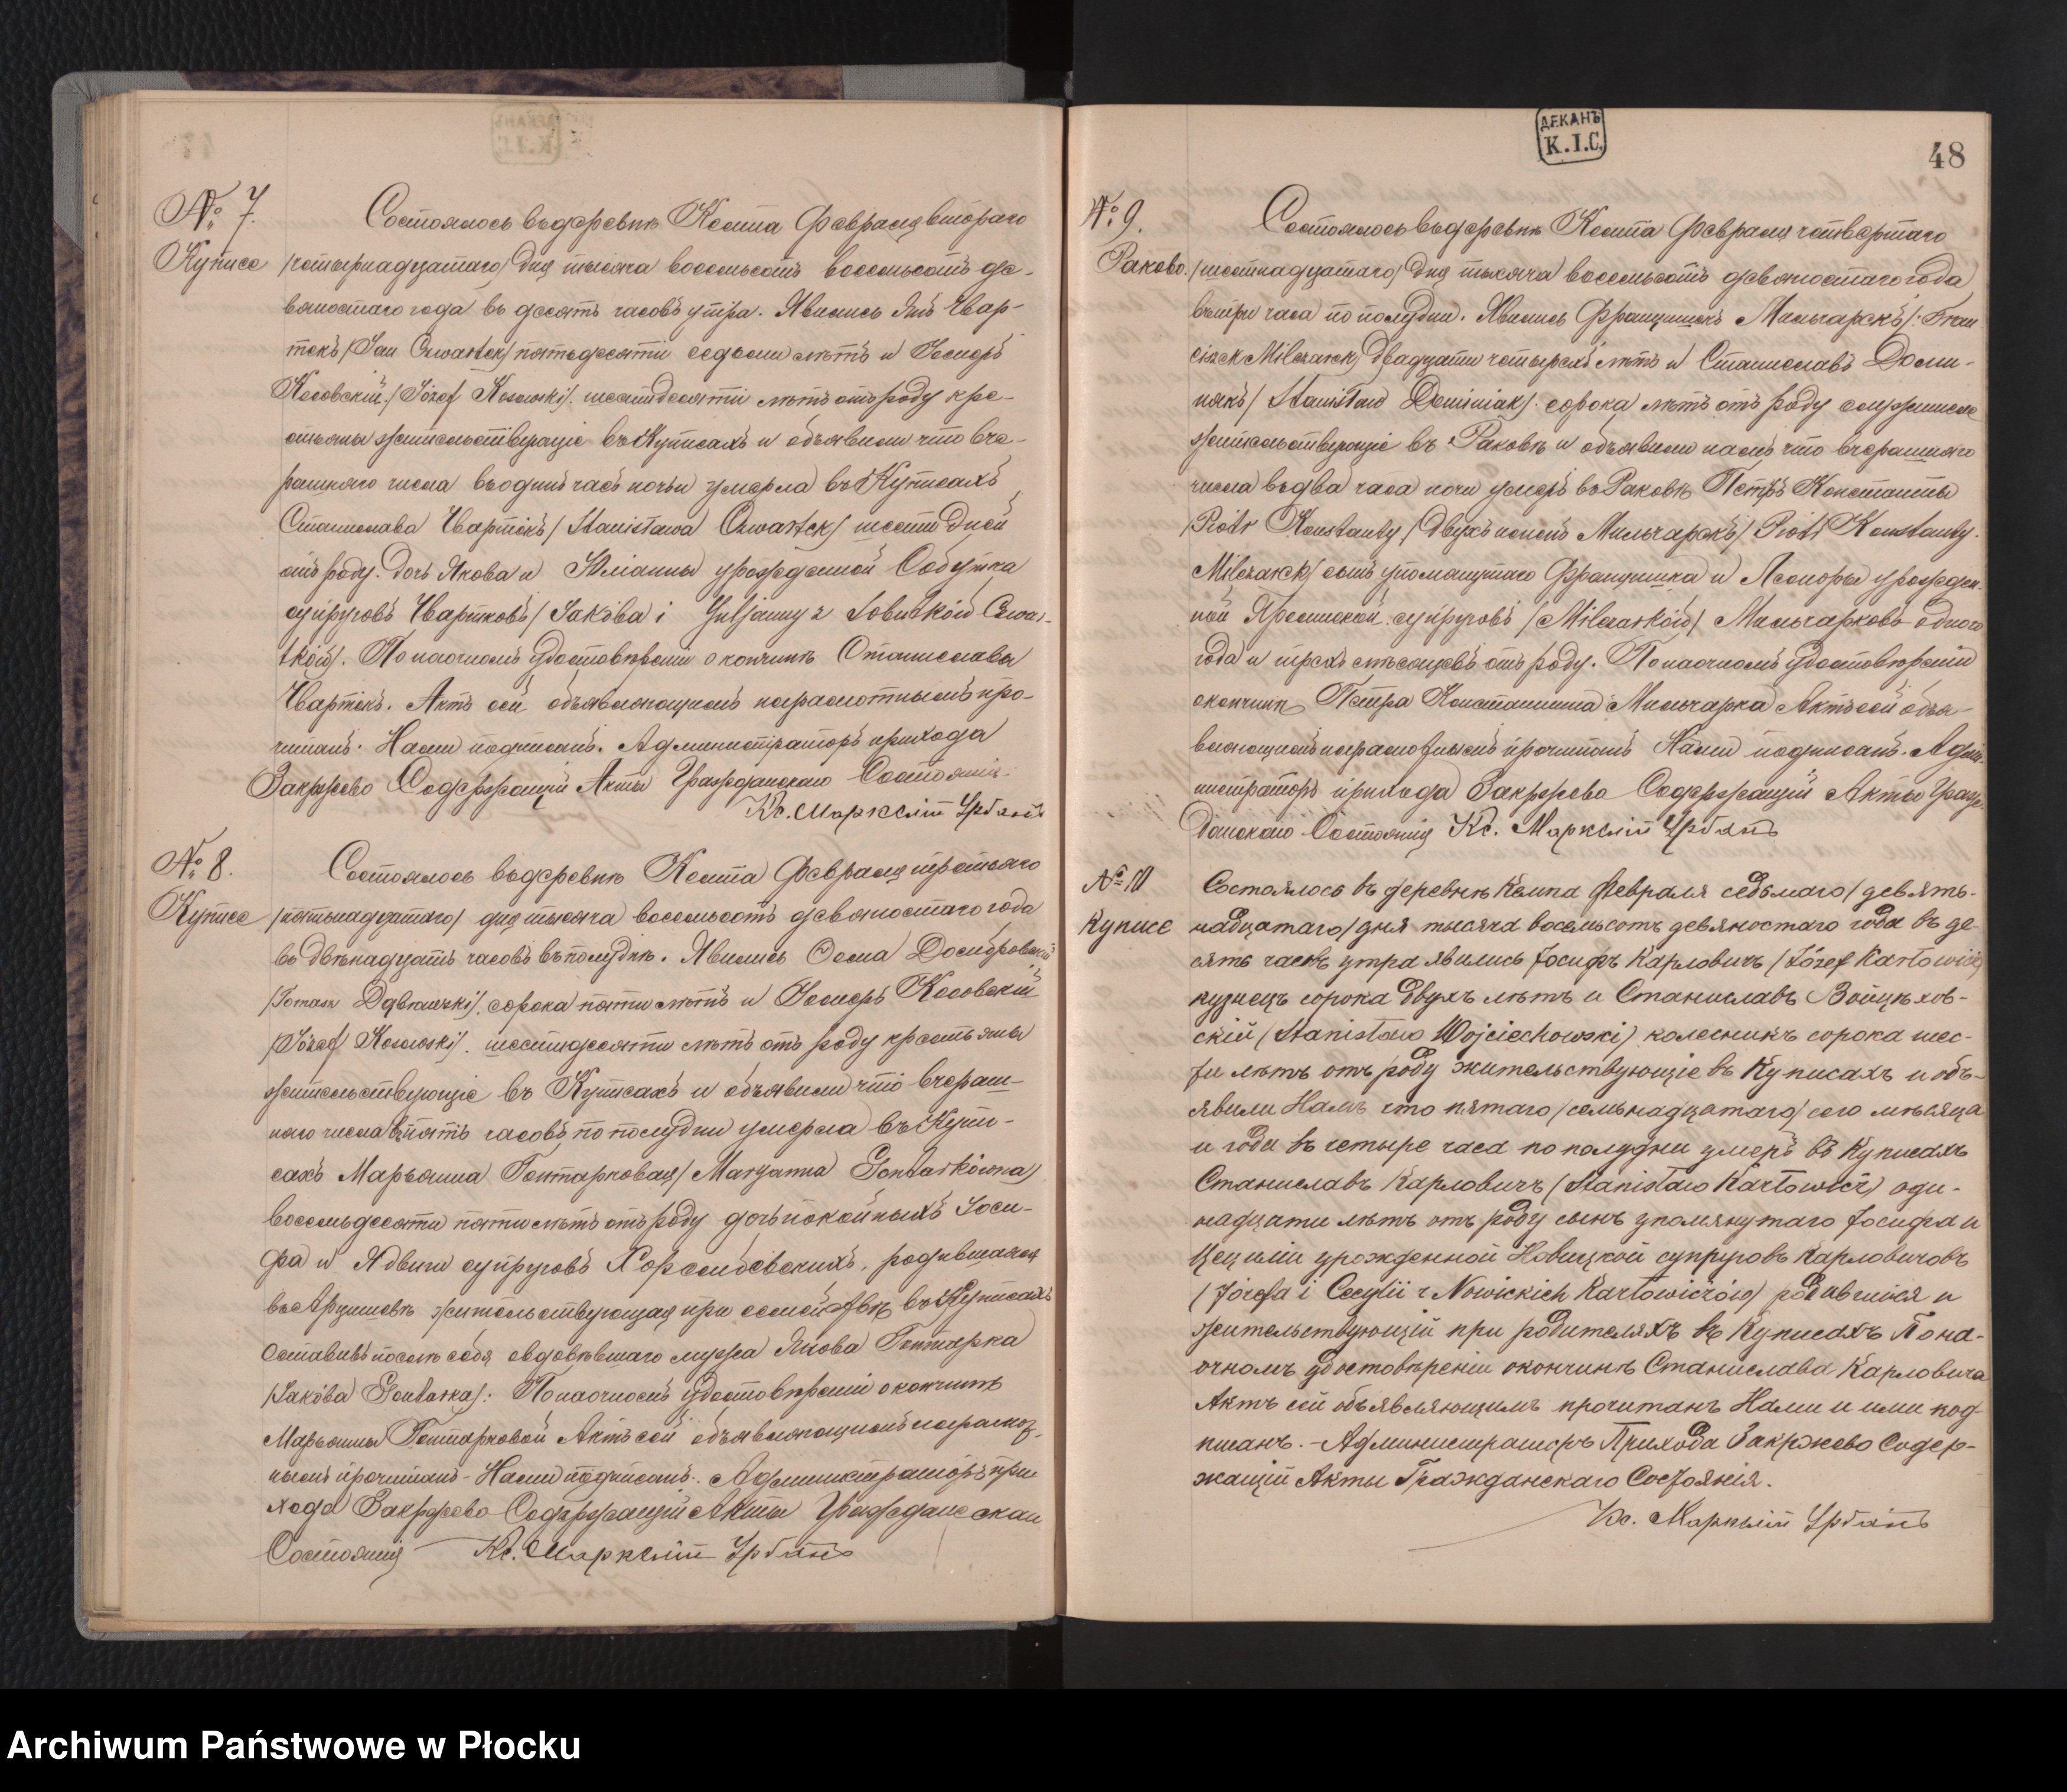 № 7.
Куписе
Состоялось въ деревнѣ Кемпа Февраля втораго
/четырнадцатаго/ дня тысяча восемьсотъ восемьсотъ де-
вяностаго года въ десять часовъ утра. Явились Янъ Чвар-
текъ /Jan Czwartek/ пятьдесяти седьми лѣтъ и Іосифъ
Косовскій /Józef Kosowski/ шестидесяти лѣтъ отъ роду кре-
стьяны жительствующіе въ Куписахъ и объявили что вче-
рашняго числа въ одинъ часъ ночьи умерла въ Куписахъ
Станислава Чвартекъ /Stanisława Czwartek/ шести дней
отъ роду. дочь Якова и Юліанны урожденной Собутка
супруговъ Чвартковъ /Jakóba i Juljanny z Sobutków Czwar-
tków/. По наочномъ удостовѣреніи о кончинѣ Станиславы
Чвартекъ. Актъ сей объявляющимъ неграмотнымъ про-
читанъ. Нами подписанъ. Администраторъ прихода
Закржево Содержащій Акты Гражданскаго Состоянія.
Кс. Маркелій Урбанъ
№ 8.
Куписе
Состоялось въ деревнѣ Кемпа Февраля третьяго
/пятьнадцатаго/ дня тысяча восемьсотъ девяностаго года
въ двѣнадцать часовъ въ полудни. Явились Ѳома Домбровскій
/Tomasz Dąbrowski/, сорока пяти лѣтъ и Іосифъ Косовскій
/Józef Kosowski/. шестидесяти лѣтъ отъ роду крестьяны
жительствующіе въ Куписахъ и объявили что вчераш-
няго числа въ пять часовъ по полудни умерла въ Купи-
сахъ Марьянна Гонтарковая /Maryanna Gontarkówna/
восемьдесяти пяти лѣтъ отъ роду дочь покойныхъ Іоси-
фа и Ядвиги супруговъ родившаяся
жительствующая при семействѣ въ Куписахъ
Оставивъ послѣ себя овдовѣвшаго мужа Якова Гонтарка
/Jakóba Gontarka/. По наочномъ удостовѣреніи о кончинѣ
Марьянны Гонтарковой Актъ сей объявляющимъ неграмот-
нымъ прочитанъ - Нами подписанъ. Администраторъ при-
хода Закржево Содержащій Акты Гражданскаго
Состоянія Кс. Маркелій Урбанъ
ДЕКАНЪ
К.І.С.
48
№ 9.
Раково.
Состоялось въ деревнѣ Кемпа Февраля четвертаго
/шестнадцатаго/ дня тысяча восемьсотъ девяностаго года
въ три часа по полудни. Явились Францишекъ Мильчарекъ /: Fran
ciszek Milczarek/ двадцати четырехъ лѣтъ и Станиславъ Доми-
някъ /Stanisław Dominiak/. сорока лѣтъ отъ роду
жительствующіе въ Раковѣ и объявили намъ что вчерашняго
числа въ два часа ночи умеръ въ Раковѣ Петръ Константы
/Piotr Konstanty/ двухъ именъ Мильчарекъ /Piotr Konstanty.
Milczarek/ сынъ упомянутаго Францишка и Леоноры урожден-
ной супруговъ /Milczarków/ Мильчарковъ одного
года и трехъ мѣсяцевъ отъ роду. По наочномъ удостовѣреніи
о кончинѣ Петра Константина Мильчарка Актъ сей объя-
вляющимъ неграмотнымъ прочитанъ Нами подписанъ. Адми-
нистраторъ прихода Закржево Содержащій Акты Граж-
данскаго Состоянія Кс. Маркелій Урбанъ
№ 10
Куписе
Состоялось въ деревнѣ Кемпа Февраля седьмаго /девять-
надцатаго/ дня тысяча восемьсотъ девяностаго года въ де-
сять часовъ утра явились Іосифъ Карловичъ /Józef Karłowicz/
кузнецъ сорока двухъ лѣтъ и Станиславъ Войцѣхов-
скій (Stanisław Wojciechowski) колесникъ сорока шес-
ти лѣтъ отъ роду жительствующіе въ Куписахъ и объ-
явили Намъ что пятаго /семьнадцатаго/ сего мѣсяца
и года въ четыре часа по полудни умеръ въ Куписахъ
Станиславъ Карловичъ (Stanisław Karłowicz) оди-
надцати лѣтъ отъ роду сынъ упомянутаго Іосифа и
Цециліи урожденной Новицкой супруговъ Карловичовъ
(Józefa i Cecylii z Nowickich Karłowiczów) родившійся и
жительствующій при родителяхъ въ Куписахъ По на-
очномъ удостовѣреніи о кончинѣ Станислава Карловича
Актъ сей объявляющимъ прочитанъ Нами и ими под-
писанъ. - Администраторъ Прихода Закржево Содер-
жащій Акты Гражданскаго Состоянія.
Кс. Маркелій Урбанъ
Archiwum Państwowe w Płocku